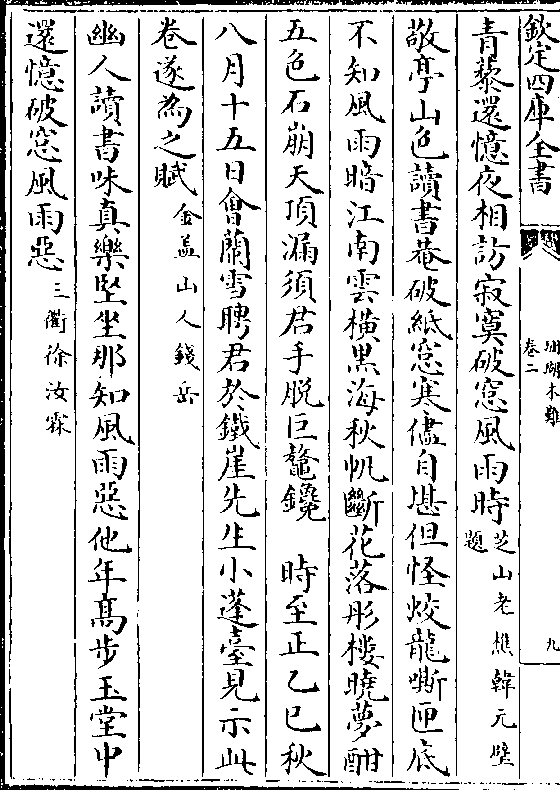 欽定四庫全書
珊瑚木難
卷二
九
青藜還憶夜相訪寂寞破窓風雨時芝山老樵韓元璧
題
敬亭山色讀書菴破紙窓寒儘自堪但怪蛟龍嘶匣底
不知風雨暗江南雲横黒海秋帆斷花落彤樓曉夢酣
五色石崩天頂漏須君手脱巨鼇鑱 時至正乙巳秋
八月十五日會蘭雪聘君於鐵崖先生小蓬臺見示此
卷遂為之賦金盖山人錢岳
幽人讀書味真樂堅坐那知風雨惡他年髙步玉堂中
還憶破窓風雨惡三衢徐汝霖